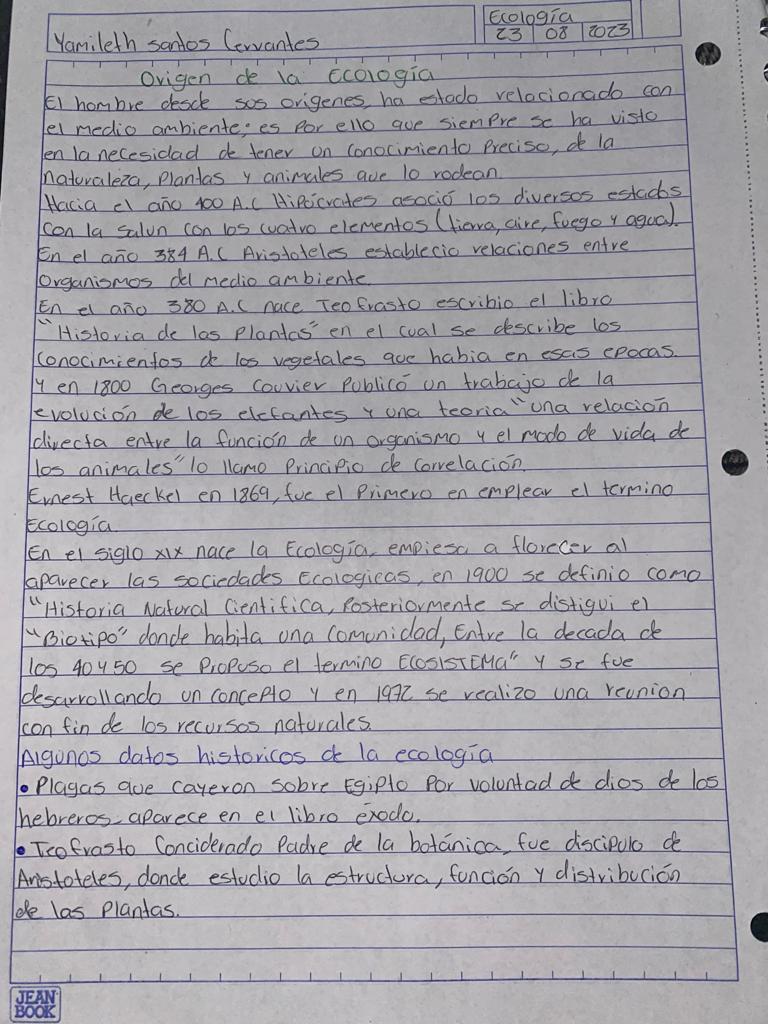 Yamileth santos Cervantes
Ecología
23 08 2023
Origen de la Ecología
El hombre desde sus origenes, ha estado relacionado con
el medio ambiente; es por ello que siempre se ha visto
en la necesidad de tener un conocimiento preciso, de la
naturaleza, plantas y animales que lo rodean.
Hacia el año 400 A.C Hipócrates asoció los diversos estados
con la salun con los cuatro elementos (tierra, aire, fuego y agua).
En el año 384 A.C Aristoteles establecio relaciones entre
organismos del medio ambiente.
En el año 380 A.C nace Teofrasto escribio el libro
"Historia de las Plantas" en el cual se describe los
conocimientos de los vegetales que habia en esas epocas.
Y en 1800 Georges Couvier Publicó un trabajo de la
evolución de los elefantes y una teoria "una relación
directa entre la función de un organismo y el modo de vida de
los animales" lo llamo Principio de correlación.
Ernest Haeckel en 1869, fue el Primero en emplear el termino
Ecología
En el siglo XIX nace la Ecología, empiesa a florecer al
aparecer las sociedades Ecologicas, en 1900 se definio como
"Historia Natural Cientifica, Posteriormente se distigui el
"Biotipo" donde habita una comunidad, Entre la decada de
los 40 y 50 se Propuso el termino ECOSISTEMA" y se fue
desarrollando un concepto y en 1972 se realizo una reunion
con fin de los recursos naturales.
Algunos datos historicos de la ecología
• Plagas que cayeron sobre Egipto Por voluntad de dios de los
hebreros, aparece en el libro éxodo.
• Teofrasto Conciderado Padre de la botánica, fue discipulo de
Aristoteles, donde estudio la estructura, función y distribución
de las Plantas.
JEAN
BOOK